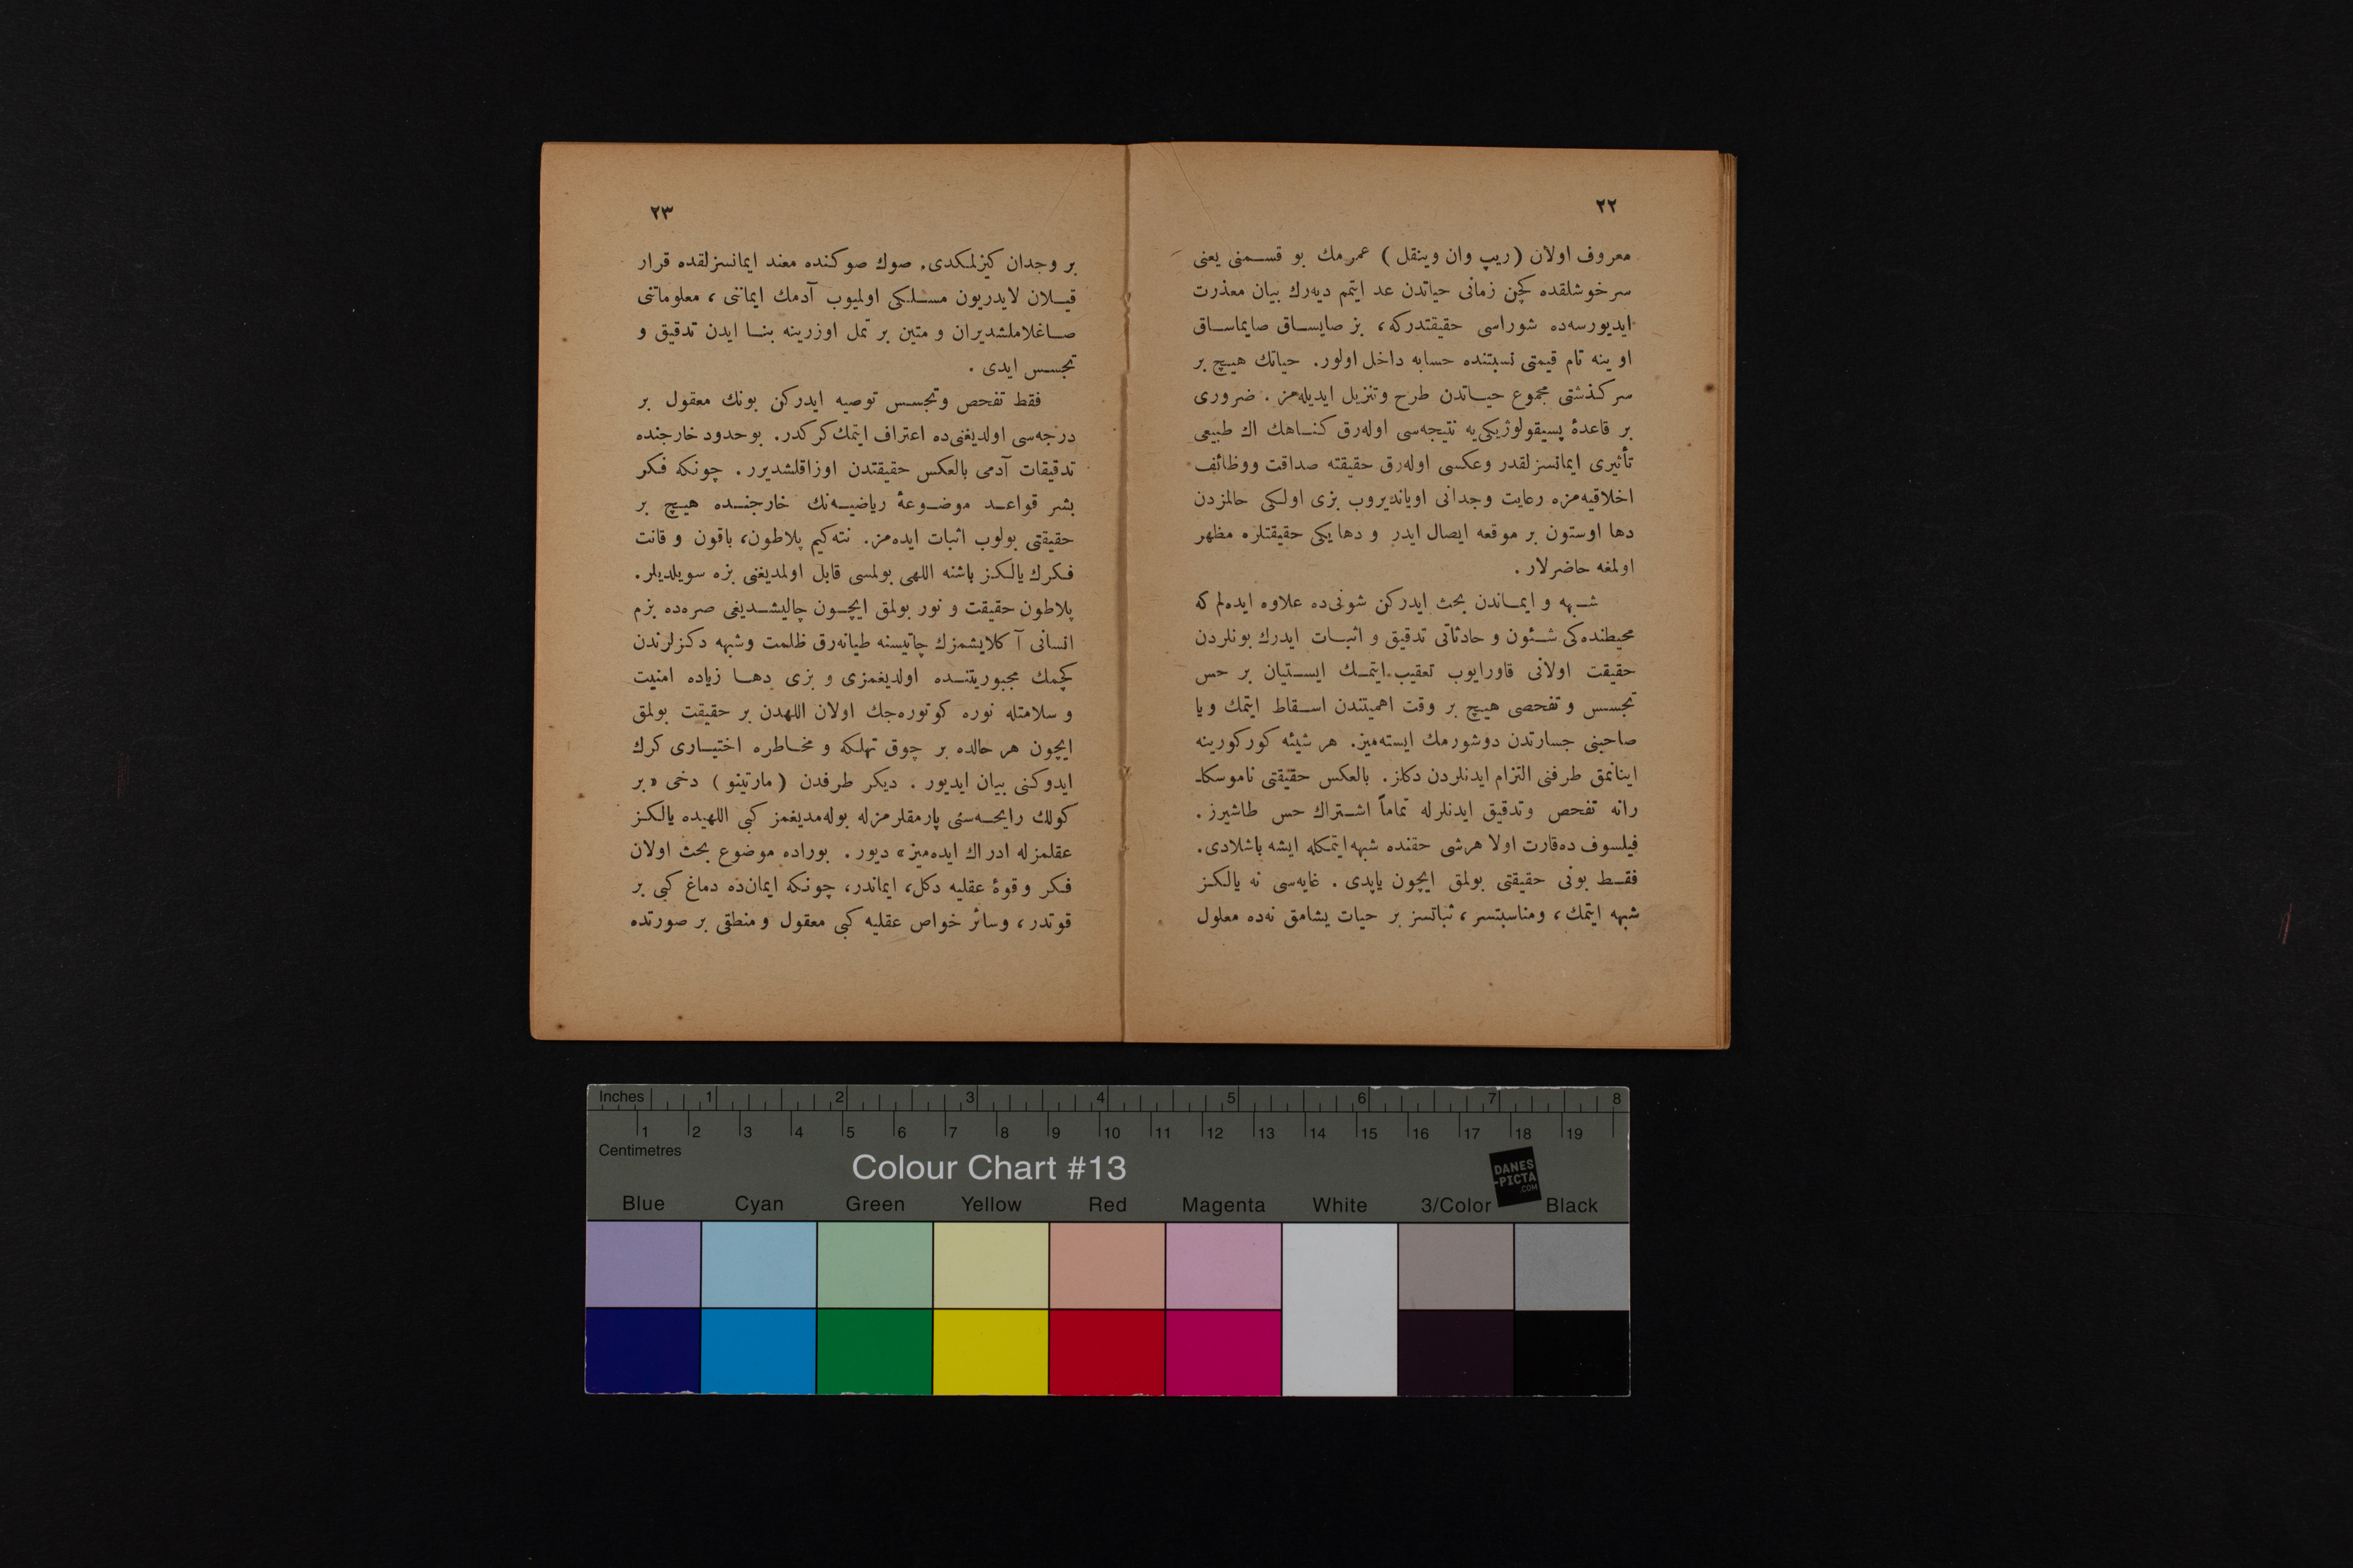 ٢٢
معروف اولان (ریپ وان وینقل) عمرمك بو قسمنی یعنی
سرخوشلقده کچن زمانی حیاتدن عد ایتمم دیه‌رك بیان معذرت
ایدیورسه‌ده شوراسی حقیقتدرکه، بز صایساق صایماساق
او ینه تام قیمتی نسبتنده حسابه داخل اولور. حیاتك هیچ بر
سرکذشتی مجموع حیاتدن طرح وتنزیل ایدیله‌مز. ضروری
بر قاعدهٔ پسیقولوژیکی‌یه نتیجه‌سی اوله‌رق کناهك اك طبیعی
تأثیری ایمانسزلقدر وعکسی اوله‌رق حقیقته صداقت ووظائف
اخلاقیه‌مزه رعایت وجدانی اویاندیروب بزی اولکی حالمزدن
دها اوستون بر موقعه ایصال ایدر و دها یکی حقیقتلره مظهر
اولمغه حاضرلار.
شبهه و ایماندن بحث ایدرکن شونی‌ده علاوه ایده‌لم که
محیطنده‌کی شئون و حادثاتی تدقیق و اثبات ایدرك بونلردن
حقیقت اولانی قاورایوب تعقیب ایتمك ایستیان بر حس
تجسس و تفحصی هیچ بر وقت اهمیتندن اسقاط ایتمك ویا
صاحبنی جسارتدن دوشورمك ایسته‌میز. هر شیئه کورکورینه
اینانمق طرفنی التزام ایدنلردن دکلز. بالعکس حقیقتی ناموسکا۔
رانه تفحص وتدقیق ایدنلرله تماماً اشتراك حس طاشیرز.
فیلسوف ده‌قارت اولا هرشی حقنده شبهه ایتمکله ایشه باشلادی.
فقط بونی حقیقتی بولمق ایچون یاپدی. غایه‌سی نه یالکز
شبهه ایتمك، ومناسبتسر، ثباتسز بر حیات یشامق نه‌ده معلول
٢٣
بر وجدان کیزلمکدی. صوك صوکنده معند ایمانسزلقده قرار
قیلان لایدریون مسلکی اولمیوب آدمك ایماننی، معلوماتنی
صاغلاملشدیران و متین بر تمل اوزرینه بنا ایدن تدقیق و
تجسس ایدی.
فقط تفحص وتجسس توصیه ایدرکن بونك معقول بر
درجه‌سی اولدیغنی‌ده اعتراف ایتمك کرکدر. بوحدود خارجنده
تدقیقات آدمی بالعکس حقیقتدن اوزاقلشدیرر. چونکه فکر
بشر قواعد موضوعهٔ ریاضیه‌نك خارجنده هیچ بر
حقیقتی بولوب اثبات ایده‌مز. نته‌کیم پلاطون، باقون و قانت
فکرك یالکز باشنه اللهی بولمسی قابل اولمدیغنی بزه سویلدیلر.
پلاطون حقیقت و نور بولمق ایچون چالیشدیغی صره‌ده بزم
انسانی آکلایشمزك چاتیسنه طیانه‌رق ظلمت وشبهه دکزلرندن
کچمك مجبوریتنده اولدیغمزی و بزی دها زیاده امنیت
و سلامتله نوره کوتوره‌جك اولان اللهدن بر حقیقت بولمق
ایچون هر حالده بر چوق تهلکه و مخاطره اختیاری کرك
ایدوکنی بیان ایدیور. دیکر طرفدن (مارتینو) دخی «بر
کولك رایحه‌سنی پارمقلرمزله بوله‌مدیغمز کبی اللهیده یالکز
عقلمزله ادراك ایده‌میز» دیور. بوراده موضوع بحث اولان
فکر و قوهٔ عقلیه دکل، ایماندر، چونکه ایمان‌ده دماغ کبی بر
قوتدر، وسائر خواص عقلیه کبی معقول و منطقی بر صورتده
Inches 1 2 3 4 5 6 7 8
1 2 3 4 5 6 7 8 9 10 11 12 13 14 15 16 17 18 19
Centimetres
Colour Chart #13
DANES
-PICTA
.COM
Blue Cyan Green Yellow Red Magenta White 3/Color Black